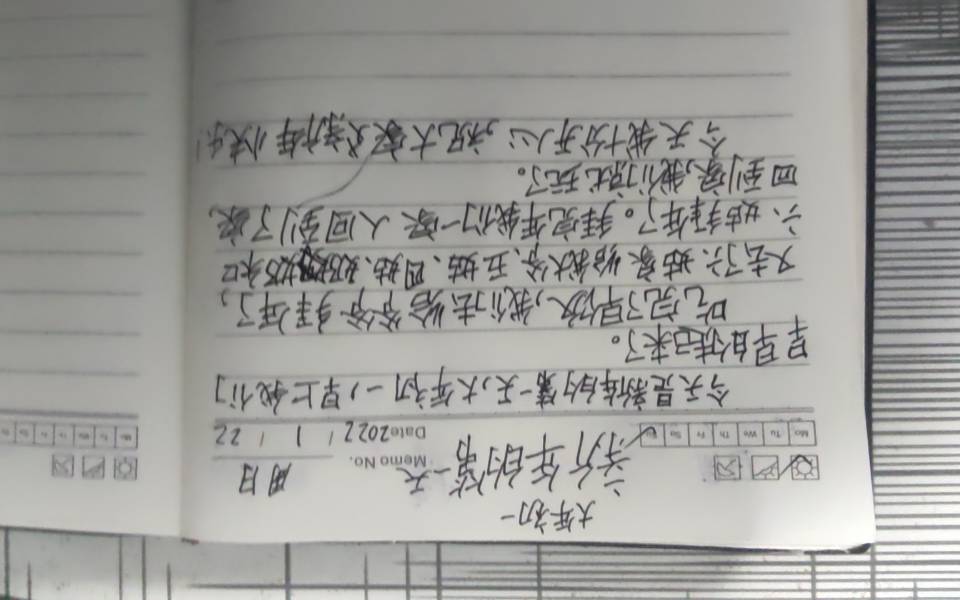 大年初一
新年的第一天
Memo No. 周日
Mo Tu We Th Fr Sa Su
Date 2022 / 1 / 22
今天是新年的第一天,大年初一,早上我们
早早的就起来了。
吃完了早饭,我们去给爷爷拜年了,
又去了六姑家给我大爷、五姑、四姑、奶奶和
六姑拜年了。拜完年我们一家人回到了家,
回到家,我们就玩了。
今天我十分开心,祝大家新年快乐!